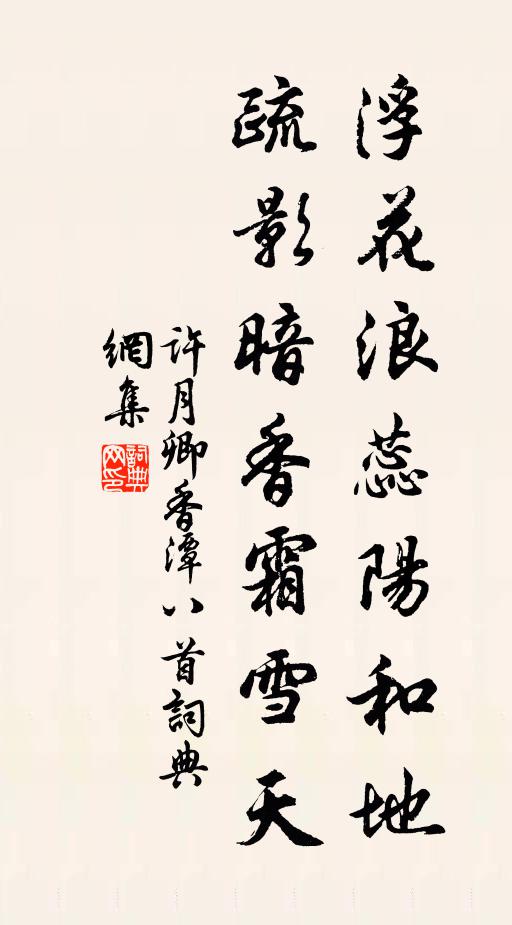 浮花浪蕊陽和地
疏影暗香霜雪天
許月卿香潭八首詞典
網集
詞典網印